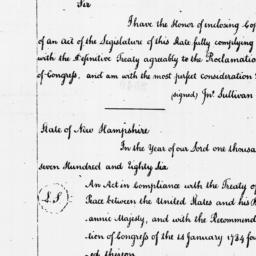 Sir
I have the Honor of inclosing Cop
of an Act of the Legislature of this State fully complying
with the Definitive Treaty agreably to the Proclamation
of Congress, and am with the most perfect consideration
(signed) Jno. Sullivan
State of New Hampshire
In the Year of our Lord one thousa
seven Hundred and Eighty Six
L.S
An Act in Compliance with the Treaty of
Peace between the United States and his
annic Majesty, and with the Recommend
tion of Congress of the 14 January 1784 for
ed thereon